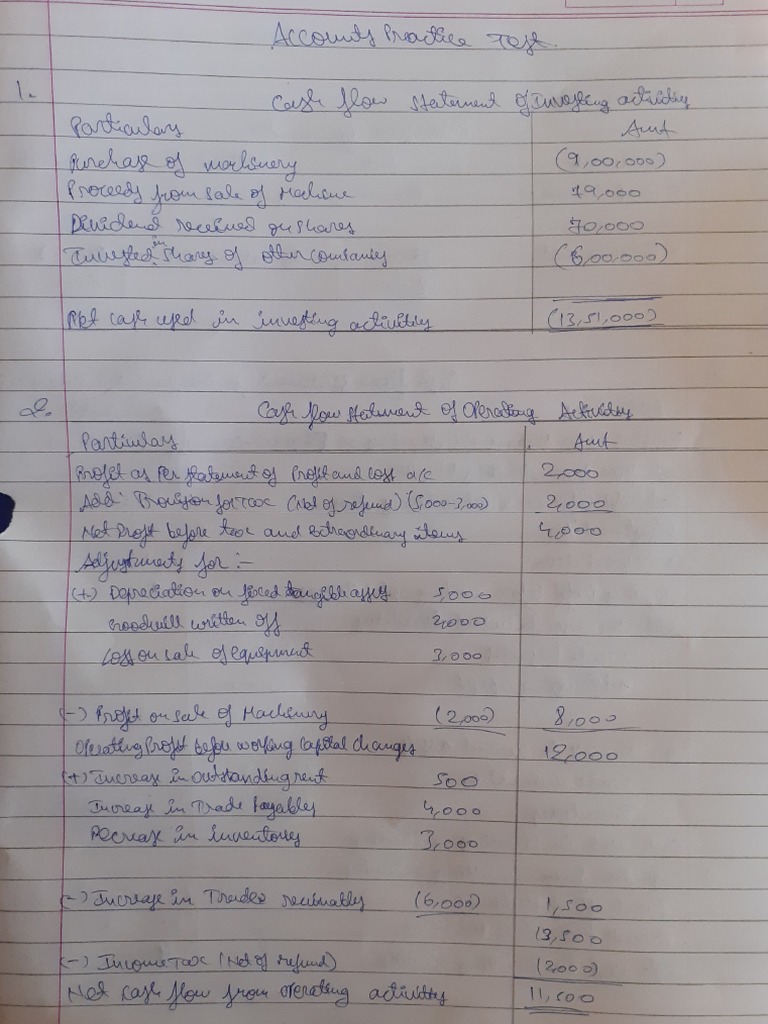 Accounts Practice Test.
1.
Cash flow statement of Investing activities
Particulars Amt
Purchase of machinery (9,00,000)
Proceeds from sale of Machine 79,000
Dividend received on shares 70,000
Invested in shares of other companies (6,00,000)
Net cash used in investing activities (13,51,000)
2.
Cash flow statement of Operating Activities
Particulars Amt
Profit as Per statement of Profit and Loss a/c 2,000
Add: Provision for tax (Net of refund) (5,000-3,000) 2,000
Net Profit before tax and extraordinary items 4,000
Adjustments for :-
(+) Depreciation on fixed tangible assets 5,000
Goodwill written off 2,000
Loss on sale of equipment 3,000
(-) Profit on sale of Machinery (2,000) 8,000
Operating Profit before working capital changes 12,000
(+) Increase in outstanding rent 500
Increase in Trade Payables 4,000
Decrease in inventories 3,000
(-) Increase in Trade receivables (6,000) 1,500
13,500
(-) Income tax (Net of refund) (2,000)
Net cash flow from operating activities 11,500